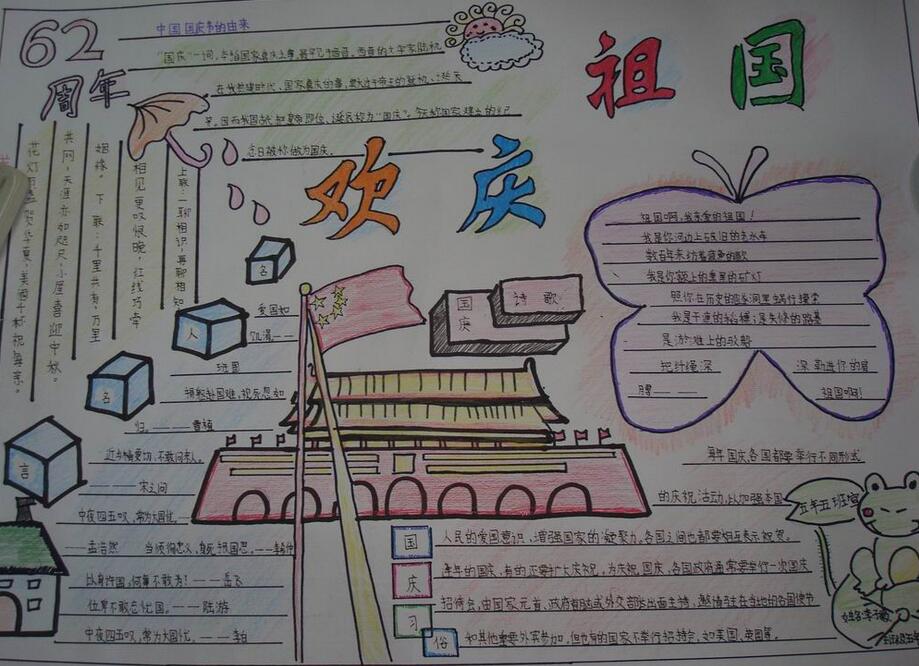 62
周年
中国国庆节的由来
"国庆"一词,本指国家喜庆之事,最早见于西晋。西晋的文学家陆机
在我国封建时代、国家喜庆的事,莫大过于帝王的登基、诞辰
等。因而我国古代把皇帝即位、诞辰称为"国庆"。今天称国家建立的纪
念日被称做为国庆。
祖国
欢庆
上联:一聊相识,再聊相知
相见更叹恨晚,红线巧牵
姻缘。下联:千里共有,万里
共同,天涯亦如咫尺,小屋喜迎中秋。
名
人
名
言
爱国如
饥渴——
班固
捐躯赴国难,视死忽如
归。———曹植
近乡情更切,不敢问来人。
———宋之问
中夜四五叹,常为大国忧。
——孟浩然
当须徇忠义,身死报国恩。——李希仲
以身许国,何事不敢为!——岳飞
位卑不敢忘忧国。——陆游
中夜四五叹,常为大国忧。——李白
国庆
诗歌
祖国啊,我亲爱的祖国!
我是你河边上破旧的老水车
数百年来纺着疲惫的歌
我是你额上熏黑的矿灯
照你在历史的隧洞里蜗行摸索
我是干瘪的稻穗;是失修的路基
是淤滩上的驳船
把纤绳深 深勒进你的肩
膊—— 祖国啊!
每年国庆各国都要举行不同形式
的庆祝活动,以加强本国
人民的爱国意识,增强国家的凝聚力。各国之间也都要相互表示祝贺。
逢年的国庆,有的还要扩大庆祝,为庆祝国庆,各国政府通常要举行一次国庆
招待会,由国家元首、政府首脑或外交部长出面主持,邀请驻在当地的各国使节
和其他重要外宾参加,但也有的国家不举行招待会,如美国、英国等。
国
庆
习
俗
五年五班